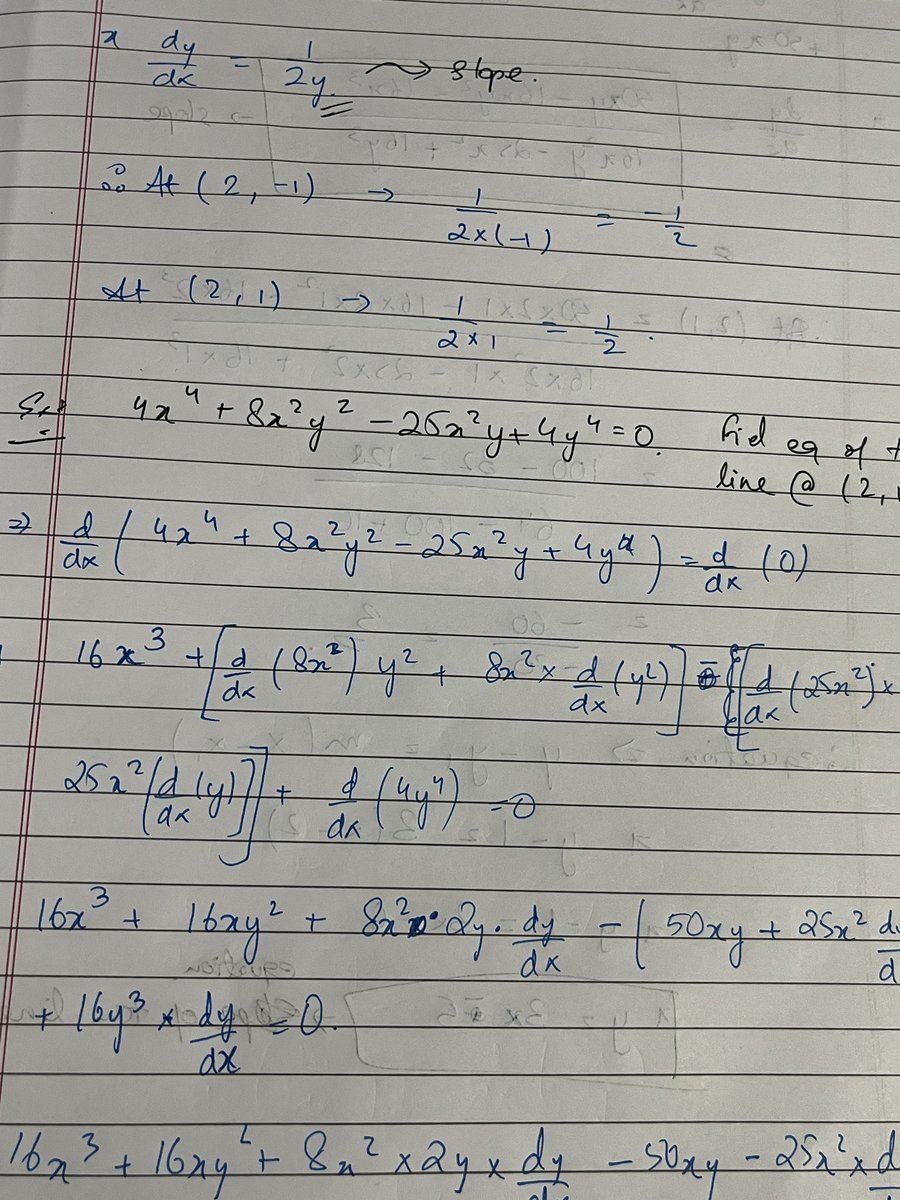 x dy/dx = 1/2y → slope.
∴ At (2, -1) → 1/(2×(-1)) = -1/2
At (2, 1) → 1/(2×1) = 1/2.
Ex: 4x⁴ + 8x²y² - 25x²y + 4y⁴ = 0. Fid eq of
line @ (2,
⇒ d/dx (4x⁴ + 8x²y² - 25x²y + 4y⁴) = d/dx (0)
16x³ + [d/dx (8x²) y² + 8x² × d/dx (y²)] - {[d/dx (25x²) ×
25x² (d/dx (y)]] + d/dx (4y⁴) = 0
16x³ + 16xy² + 8x² · 2y · dy/dx - [50xy + 25x² dy/d
+ 16y³ × dy/dx = 0.
16x³ + 16xy² + 8x² × 2y × dy/dx - 50xy - 25x² × d